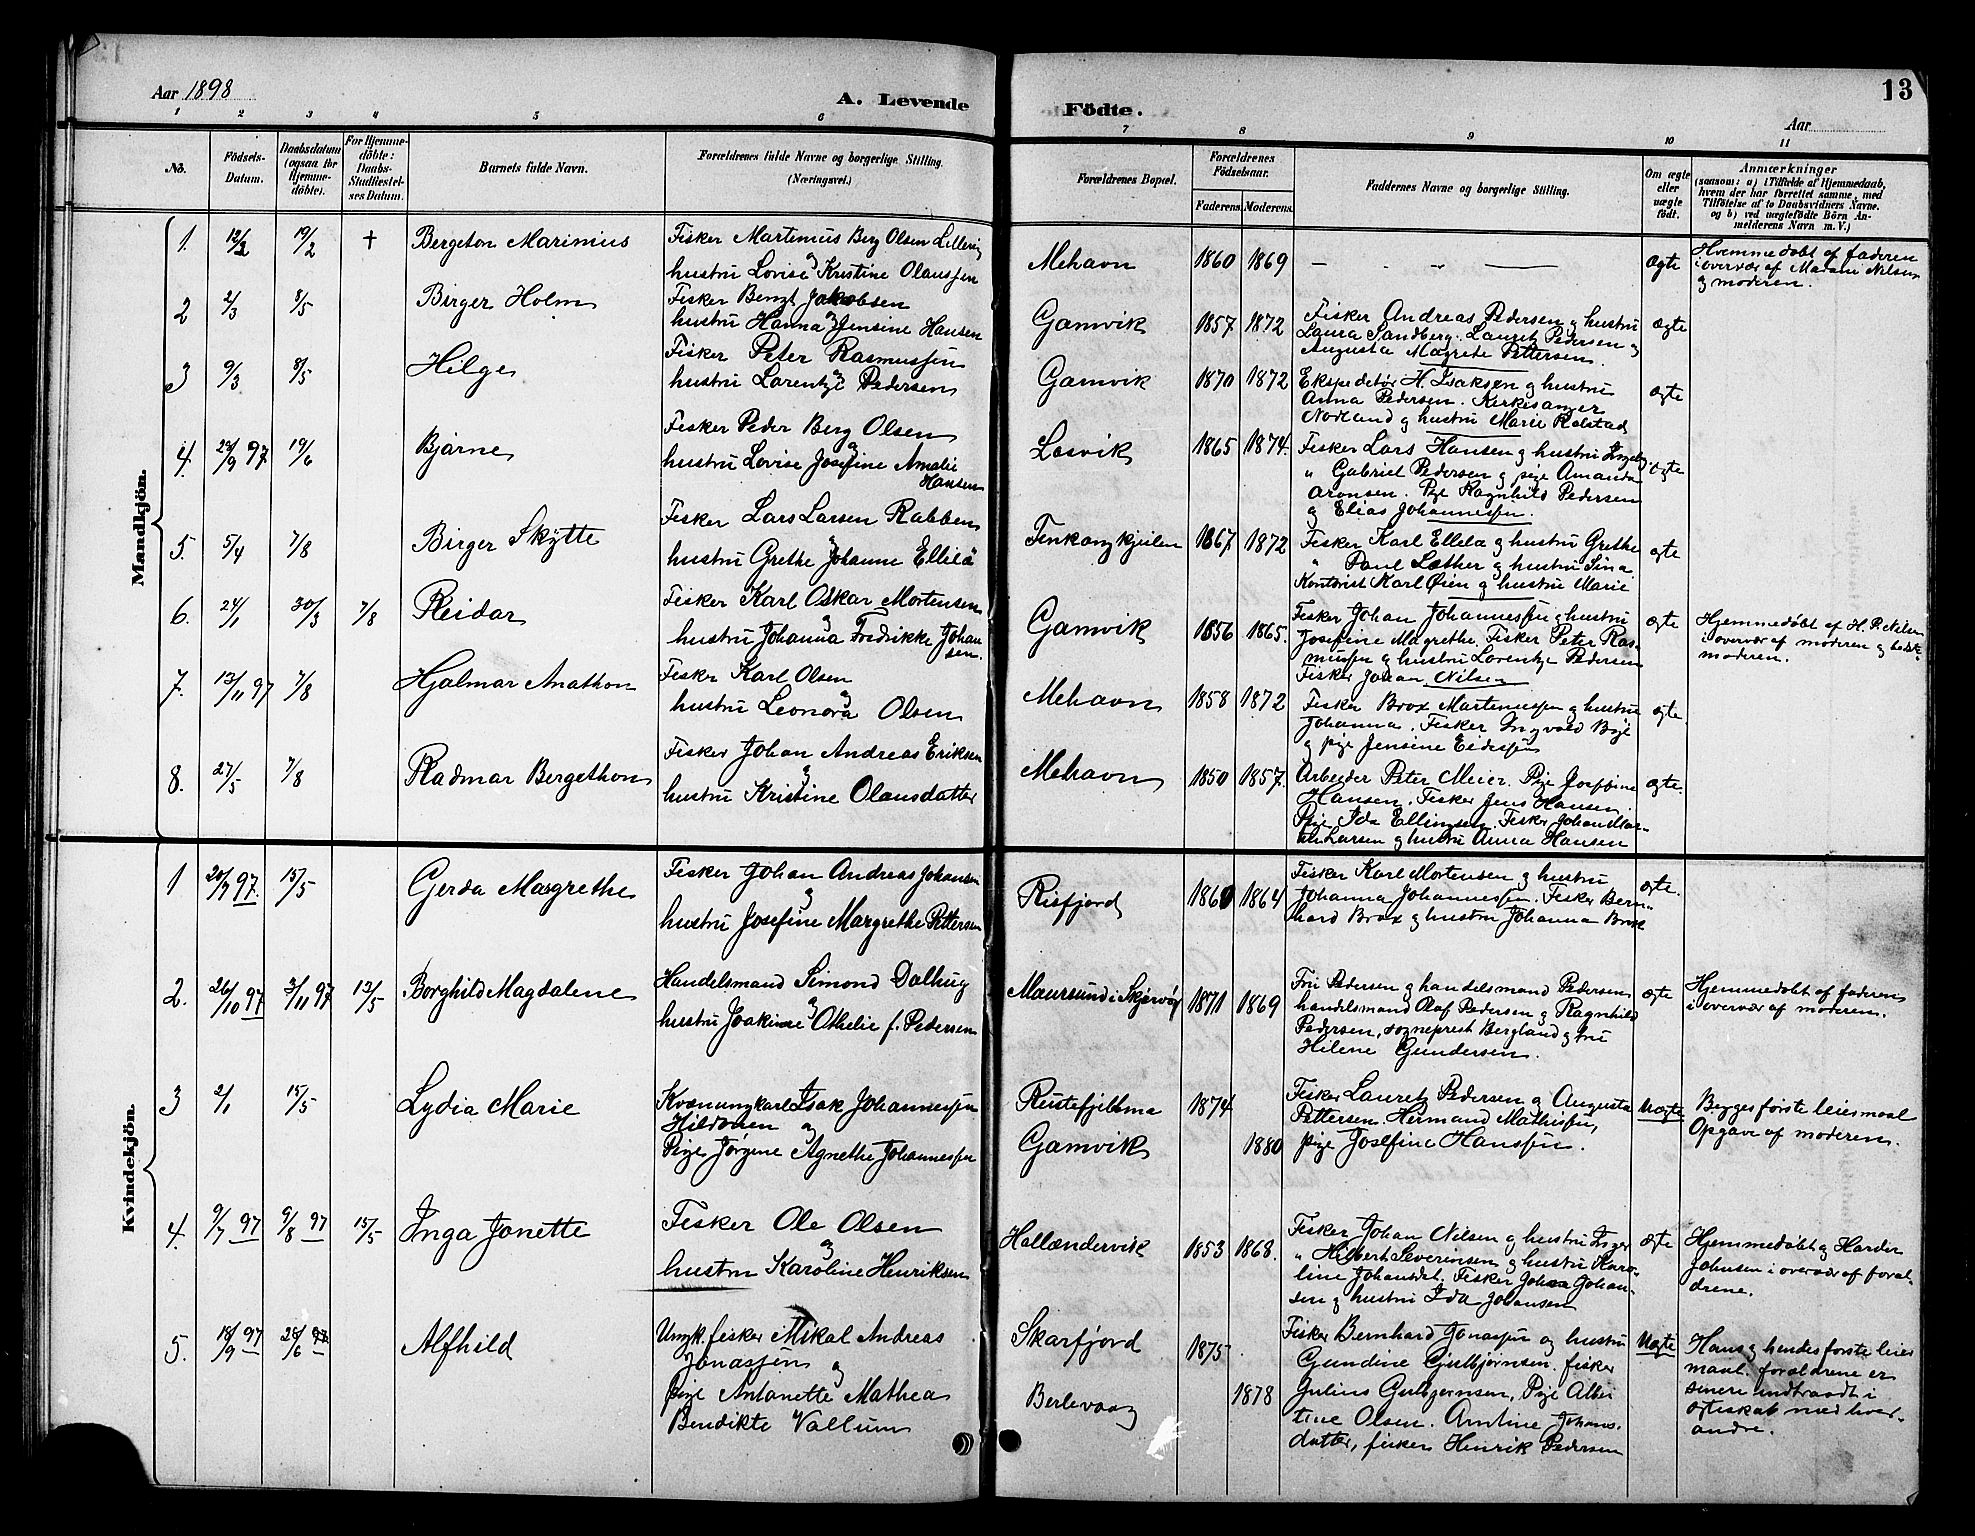 Aar 1898
A. Levende
Födte.
Aar
13
1 2 3 4 5 6 7 8 9 10 11
No.
Födsels-Datum.
Daabsdatum (ogsaa for Hjemmedöbte).
For Hjemmedöbte: Daabs-Stadfæstelses Datum.
Barnets fulde Navn.
Forældrenes fulde Navne og borgerlige Stilling.
(Næringsvei.)
Forældrenes Bopæl.
Forældrenes Födselsaar.
Faderens.
Moderens.
Faddernes Navne og borgerlige Stilling.
Om ægte eller uægte födt.
Anmærkninger
(saasom: a) i Tilfælde af Hjemmedaab,
hvem der har forrettet samme, med
Tilföielse af to Daabsvidners Navne.
og b) ved uægtefödte Börn An-
melderens Navn m.V.)
Mandkjön.
1. 12/2 19/2 † Bergeton Marinius
Fisker Martinus Berg Olsen Lillevig
og
hustru Lovise Kristine Olaussen
Mehavn 1860 1869 — — — ægte
Hjemmedøbt af faderen
i overvær af Marane Nilsen
og moderen.
2 2/3 8/5 Birger Holm
Fisker Benzt Jakobsen
og
hustru Hanna Jensine Hansen
Gamvik 1857 1872
Fisker Andreas Pedersen og hustru
Laura Sandberg. Lauretz Pedersen og
Augusta Magrete Pettersen.
ægte
3 9/3 8/5 Hilge
Fisker Peter Rasmussen
og
hustru Lorentze Pedersen
Gamvik 1870 1872
Ekspeditør H. Isaksen og hustru
Anna Pedersen. Kirkesanger
Nordland og hustru Marie Rolstad
ægte
4. 29/9 97 19/6 Bjarne
Fisker Peder Berg Olsen
og
hustru Lovise Josefine Amalie
Hansen
Losvik 1865 1874.
Fisker Lars Hansen og hustru Ingeb.
" Gabriel Pedersen og pige Amanda
Aronsen. Pige Ragnhild Pedersen
og Elias Johannessen.
ægte
5. 5/4 7/8 Birger Skytte
Fisker Lars Larsen Rabben
og
hustru Grethe Johanne Ellilä
Finkongkjeilen 1867 1872
Fisker Karl Ellela og hustru Grethe
" Paul Lather og hustru Sina
Kontorist Karl Øien og hustru Marie
ægte
6. 24/1 30/3 7/8 Reidar
Fisker Karl Oskar Mortensen
og
hustru Johanna Fredrikke Johan
sen.
Gamvik 1856 1865.
Fisker Johan Johannessen og hustru
Josefine Magrethe. Fisker Peter Ras-
mussen og hustru Lorentze Pedersen
Fisker Johan Nilsen
ægte
Hjemmedøbt af H. P. Nilsen
i overvær af moderen og bedste-
moderen.
7. 13/11 97 7/8 Hjalmar Anathon
Fisker Karl Olsen
og
hustru Leonora Olsen
Mehavn 1858 1872
Fisker Brox Martinussen og hustru
Johanna. Fisker Ingvald Bye
og pige Jensine Eidissen
ægte
8. 27/5 7/8 Radmar Bergethon
Fisker Johan Andreas Eriksen
og
hustru Kristine Olausdatter
Mehavn 1850 1857.
Arbeider Peter Meier. Pige Josefine
Hansen. Fisker Jens Hansen.
Pige Ida Ellingsen. Fisker Johan
Larsen og hustru Anna Hansen
ægte.
Kvindekjön.
1 20/7 97. 15/5 Gerda Margrethe
Fisker Johan Andreas Johansen
og
hustru Josefine Margrethe Pettersen
Risfjord 1860 1864
Fisker Karl Mortensen og hustru
Johanna Johannessen. Fisker Bern-
hard Brox og hustru Johanna Brox
ægte.
2. 26/10 97 3/11 97 13/5 Borghild Magdalene
Handelsmand Simond Dalhug
og
hustru Joakime Othelie f. Pedersen
Maursund i Skjervøy 1871 1869
Fru Pedersen og handelsmand Pedersen
handelsmand Olaf Pedersen og Ragnhild
Pedersen, sogneprest Bergland og fru
Hilene Gundersen.
ægte
Hjemmedøbt af faderen
i overvær af moderen.
3 2/1 15/5 Lydia Marie
Kvænungkarl Isak Johannessen
Hildonen og
Pige Jørgine Agnethe Johannessen
Rustefjelbma 1874
Gamvik 1880
Fisker Lauretz Pedersen og Augusta
Pettersen. Hermand Mathissen,
pige Josefine Hanssen.
Uægte
Begges første leiermaal
Opgave af moderen.
4. 9/7 97 9/8 97 15/5 Inga Jonette
Fisker Ole Olsen
og
hustru Karoline Henriksen
Hollændervik 1853 1868.
Fisker Johan Nilsen og hustru Inger
" Hilbert Severinsen og hustru Karo-
line Johansdat. Fisker Johan Johan-
sen og hustru Ida Johansen
ægte
Hjemmedøbt og Harder
Johnsen i overvær af foræl-
drene.
5. 18/9 97 28/6 98 Alfhild
Ungk. fisker Mikal Andreas
Jonassen og
pige Antonette Mathea
Bendikte Vallum
Skarfjord 1875
Berlevaag 1878
Fisker Bernhard Jonassen og hustru
Gundine Gulbjørnsen. fisker
Julius Gulbjørnsen, Pige Alber
tine Olsen. Antine Johans-
datter, fisker Henrik Pedersen
Uægte
Hans og hendes første leier
maal. forældrene er
senere indtraadt i
ægteskab med hver-
andre.